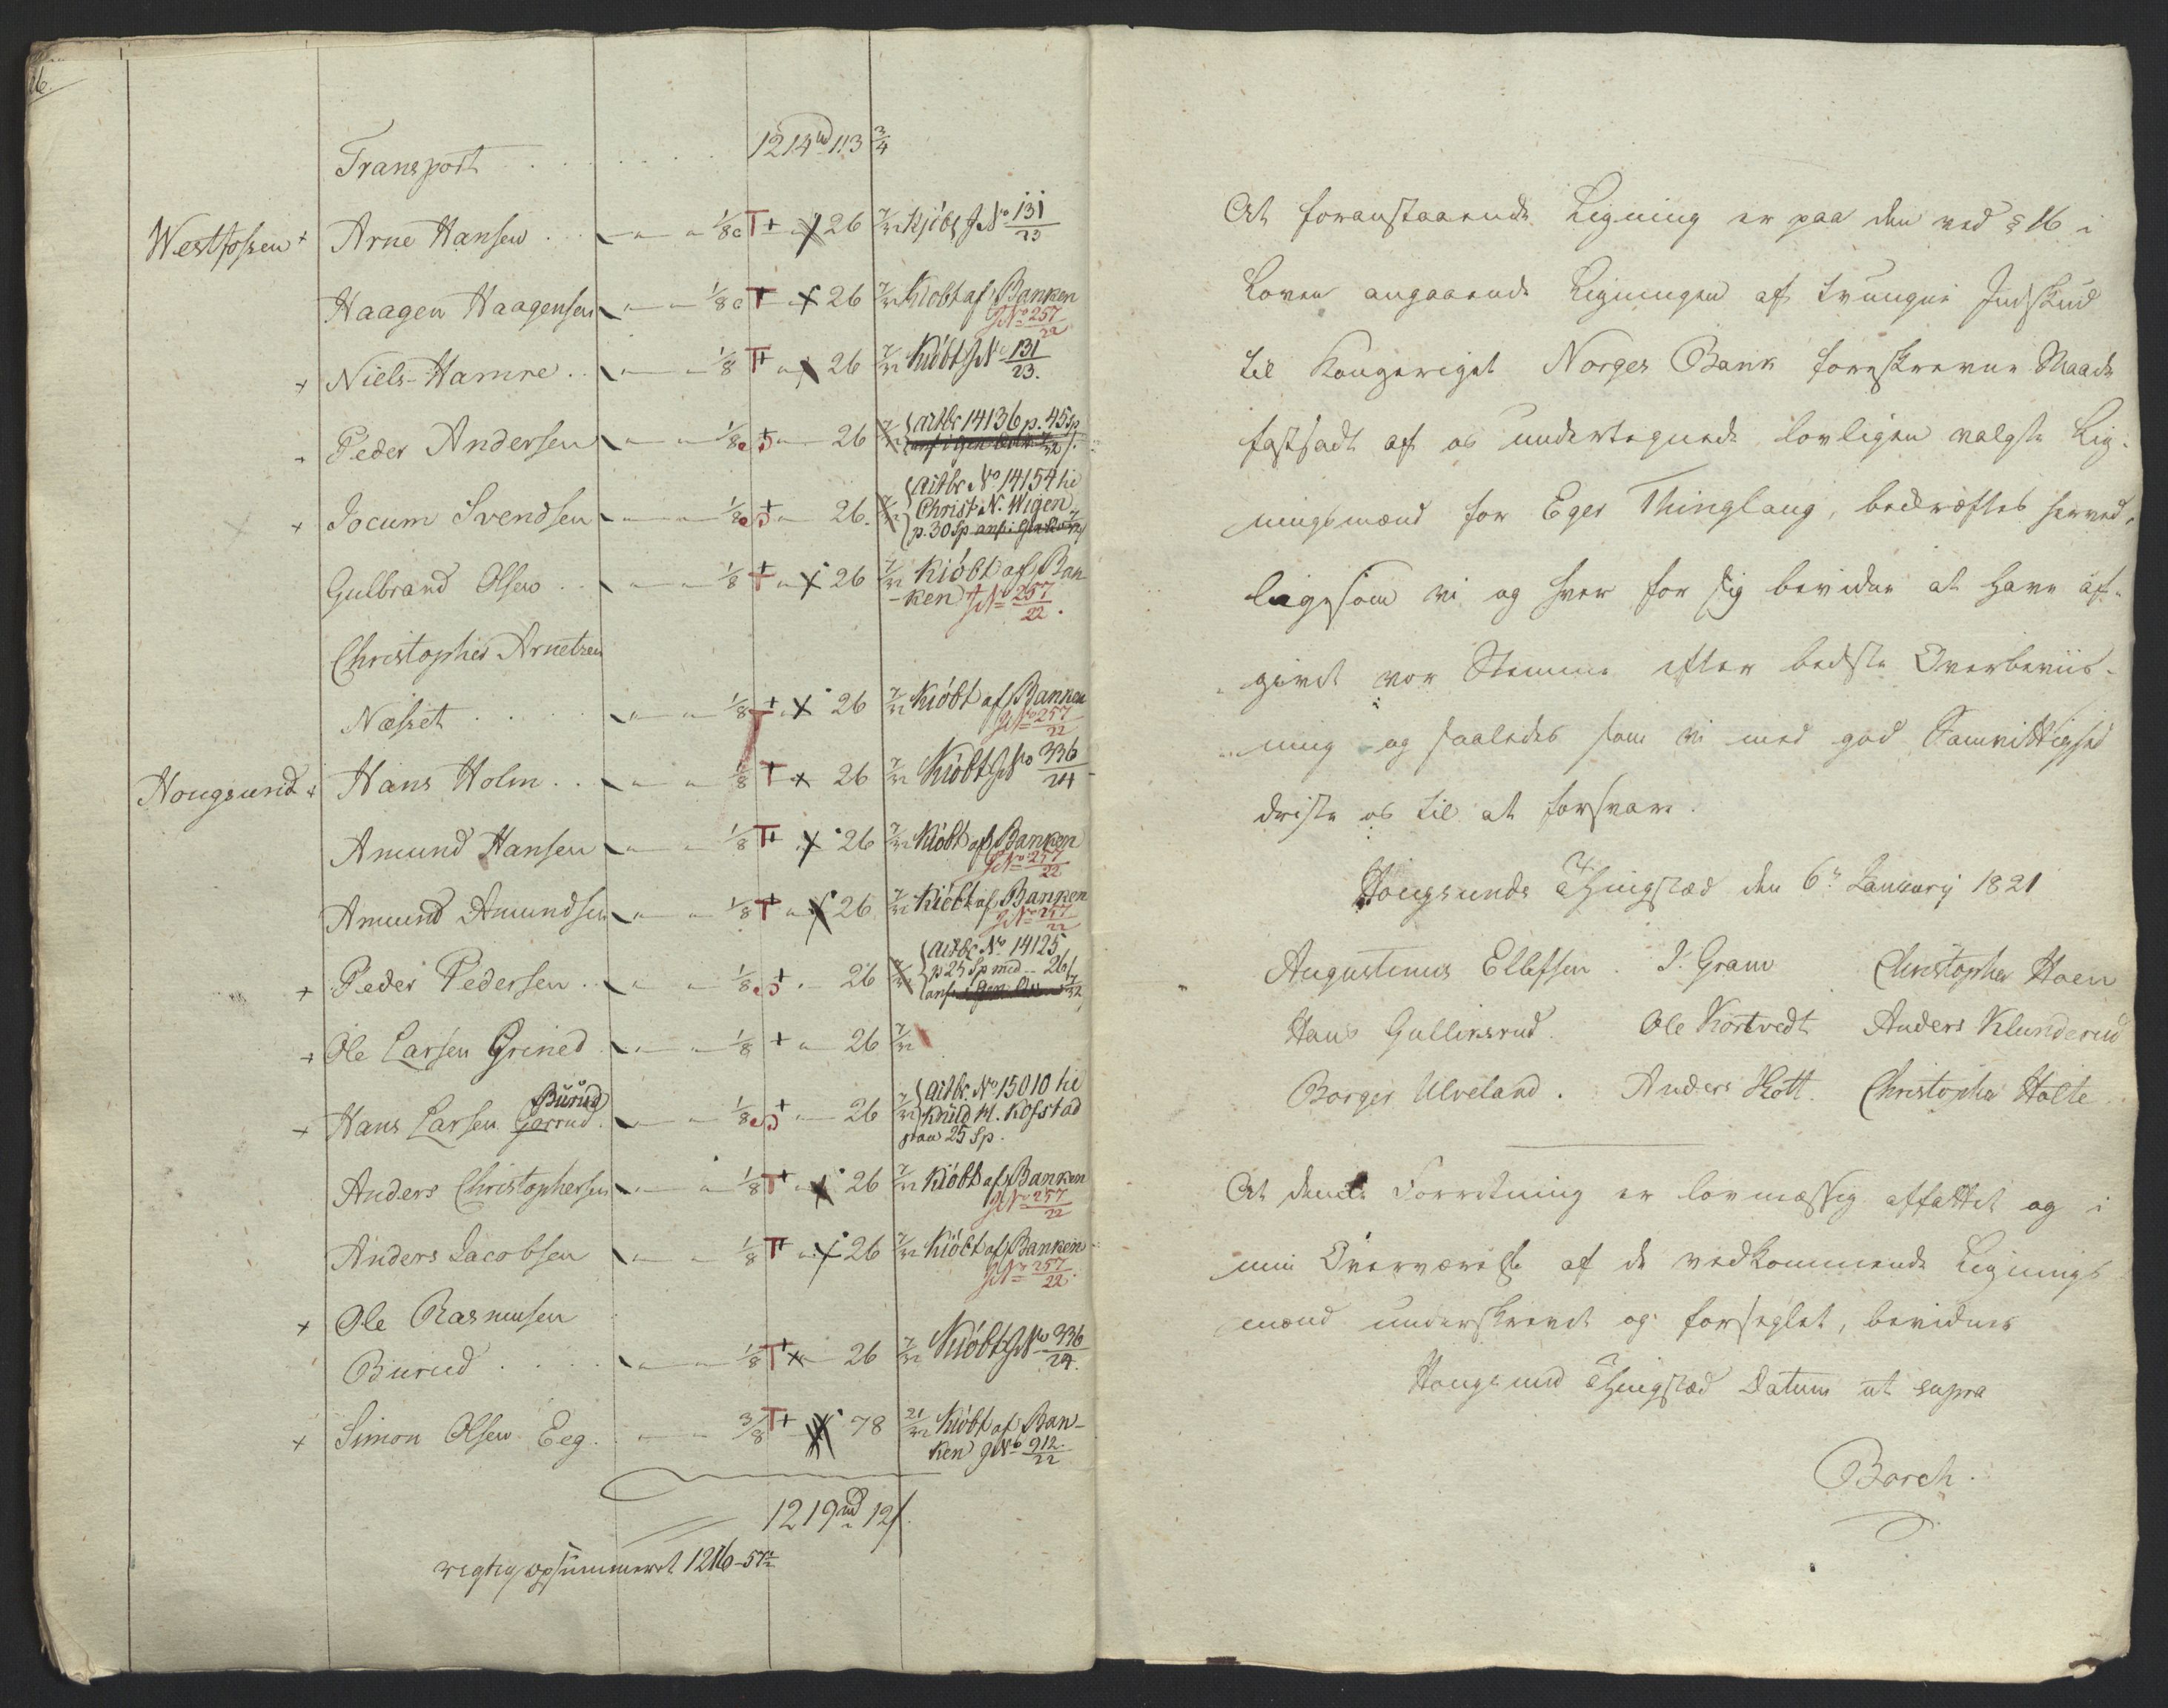 26.
Transport . . . . . . . 1214 113 3/4
Westfossen + Arne Hansen . . . 1/8 T + 26 7/12 Kjöbt J No 131/23
Haagen Haagensen 1/8 T 26 7/12 Kiöbt af Banken
J No 257/22
+ Niels Hamre . . 1/8 T + 26 7/12 Kiöbt J No 131/23.
Peder Andersen 1/8 + 26 7/12 14136 p. 45 Sp
+ Jocum Svendsen 1/8 + 26. 7/12 No 14154 til
Christ. N. Wigen
p. 30 Sp
Gulbrand Olsen . . 1/8 T + 26 7/12 Kiöbt af Ban
-ken J No 257/22.
Christopher Arnetzen
Næsset . . . . 1/8 T + 26 7/12 Kiöbt af Banken
J No 257/22
Hougsund + Hans Holm . . 1/8 T + 26 7/12 Kiöbt J No 336/24
Amund Hansen 1/8 T + 26 7/12 Kiöbt af Banken
J No 257/22
Amund Amundsen 1/8 T + 26 7/12 Kiöbt af Banken
J No 257/22
+ Peder Pedersen . . 1/8 + 26 No 14125
p 25 Sp med 26
+ Ole Larsen Grined 1/8 + 26 7/12
Burud
+ Hans Larsen Gorrud. 1/8 + 26 7/12 No 15010 til
Knud M. Kofstad
paa 25 Sp.
Anders Christophersen 1/8 T + 26 7/12 Kiöbt af Banken
J No 257/22
Anders Jacobsen 1/8 T + 26 7/12 Kiöbt af Banken
J No 257/22.
+ Ole Rasmusen
Burud . . . . 1/8 T + 26 7/12 Kiöbt J No 336/24.
+ Simon Olsen Eeg. 3/8 T + 78 21/12 Kiöbt af Ban-
ken J No 912./22
1219 121.
rigtig opsummeret 1216-57 1/2
At foranstaaende Ligning er paa den ved § 16 i
Loven angaaende Ligningen af tvungne Indskud
til Kongeriget Norges Bank foreskrevne Maade
fastsadt af os undertegnede lovligen valgte Lig-
ningsmænd for Eger Thinglaug, bekræftes herved,
ligesom vi og hver for sig bevidne at have af-
givet vor Stemme efter bedste Overbeviis-
ning og saaledes som vi med god Samvittighed
driste os til at forsvare.
Hougsunds Thingsted den 6te January 1821
Augustinus Ellefsen. J. Gram Christopher Hoen
Hans Gulliksrud. Ole Kortvedt Anders Klunderud
Borger Ulveland. Anders Hott. Christopher Holte.
At denne Forretning er lovmæssig affattet og i
min Overværelse af de vedkommende Lignings
mænd underskrevet og forseglet, bevidnes
Hougsund Thingsted Datum ut supra
Borch.